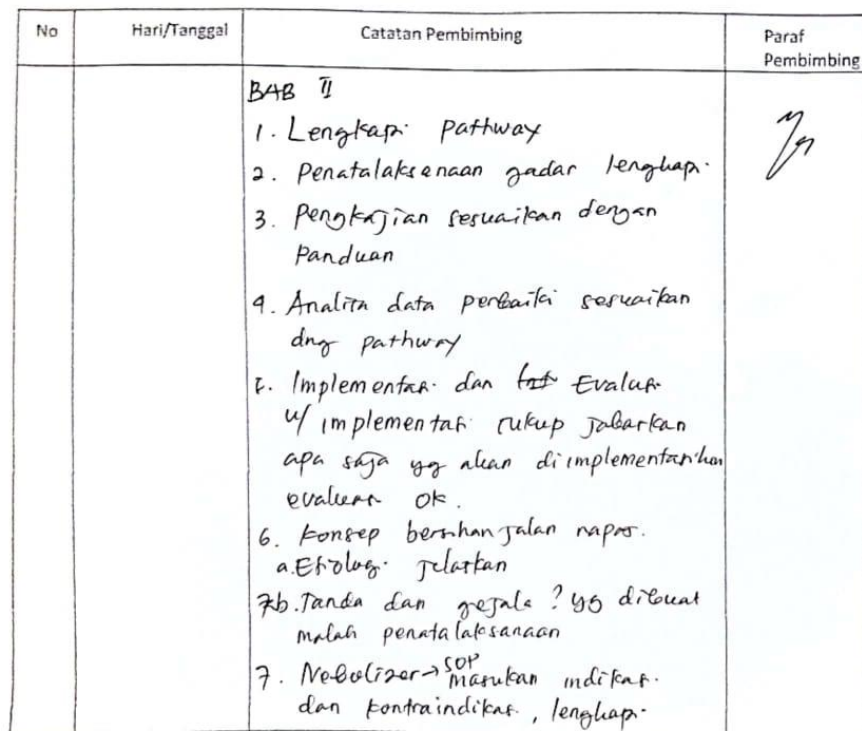 No Hari/Tanggal Catatan Pembimbing Paraf
Pembimbing
BAB II
1. Lengkapi pathway
2. Penatalaksanaan gadar lengkapi.
3. Pengkajian sesuaikan dengan
Panduan
4. Analisa data perbaiki sesuaikan
dng pathway
5. Implementasi dan Evaluasi
u/ implementasi cukup jabarkan
apa saja yg akan diimplementasikan
evaluasi ok.
6. Konsep bersihan jalan napas.
a. Etiologi jelaskan
b. Tanda dan gejala? yg dibuat
malah penatalaksanaan
7. Nebulizer → SOP masukan indikasi
dan kontraindikasi, lengkapi.